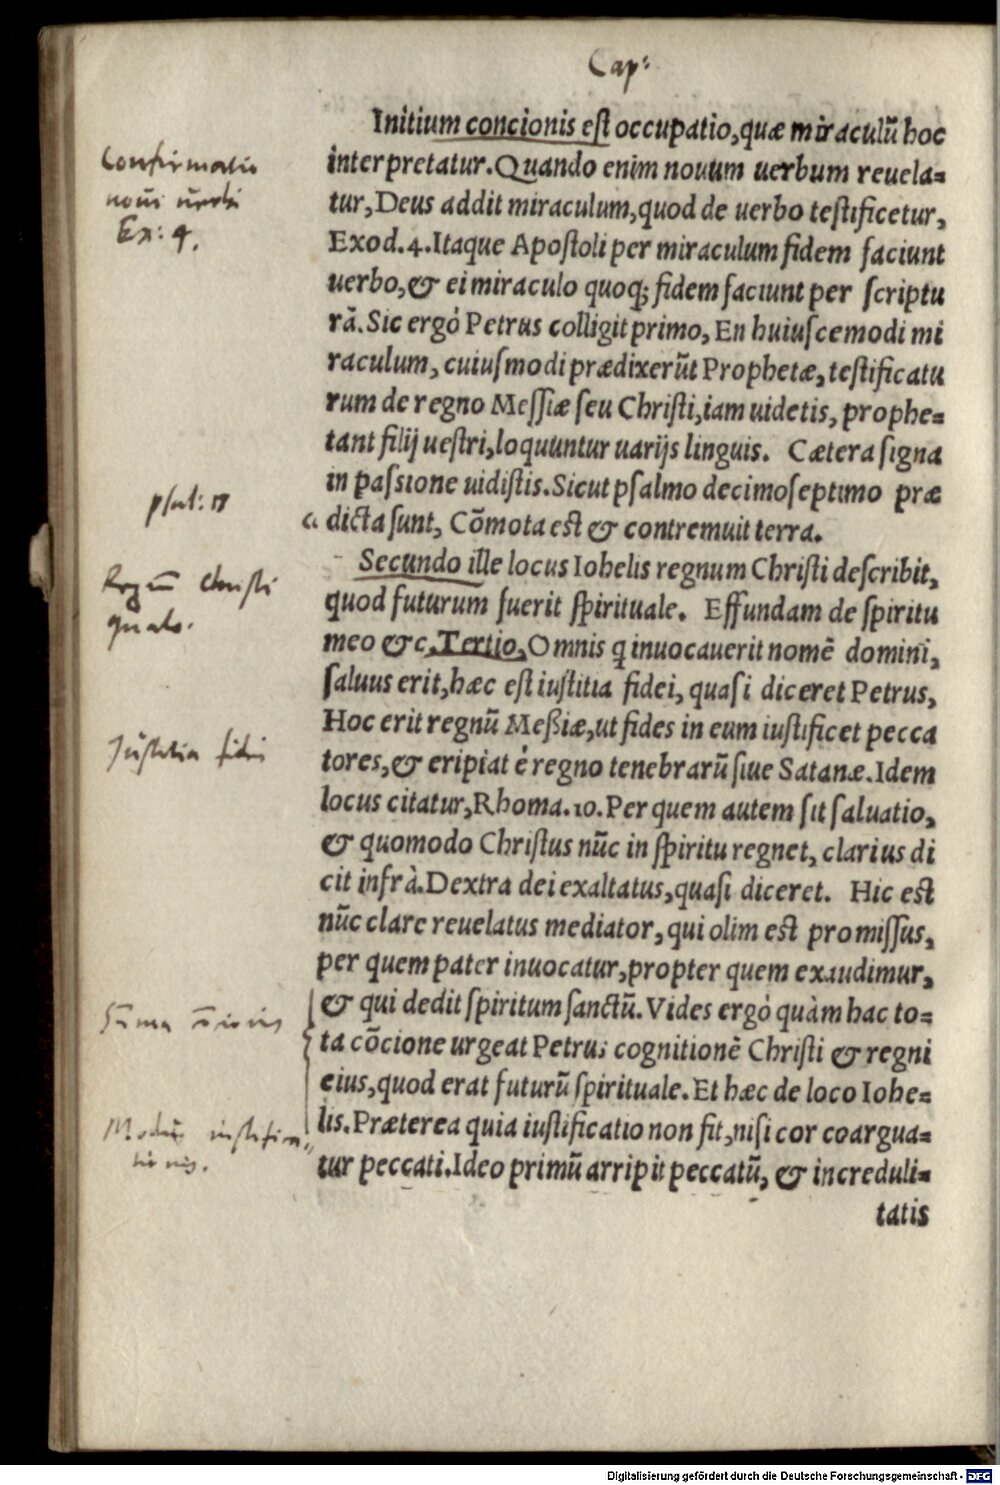 Cap:
Initium concionis est occupatio, quæ miraculũ hoc
Confirmatio
interpretatur. Quando enim nouum uerbum reuela=
noui uerbi
tur, Deus addit miraculum, quod de uerbo testificetur,
Ex: 4.
Exod. 4. Itaque Apostoli per miraculum fidem faciunt
uerbo, & ei miraculo quoq; fidem faciunt per scriptu
rã. Sic ergò Petrus colligit primo, En huiuscemodi mi
raculum, cuiusmodi prædixerũt Prophetæ, testificatu
rum de regno Messiæ seu Christi, iam uidetis, prophe=
tant filij uestri, loquuntur uarijs linguis. Cætera signa
in passione uidistis. Sicut psalmo decimoseptimo præ
psal: 17
dicta sunt, Cõmota est & contremuit terra.
Secundo ille locus Iohelis regnum Christi describit,
Regnũ Christi
quod futurum fuerit spirituale. Effundam de spiritu
quale.
meo &c. Tertio, Omnis q inuocauerit nomẽ domini,
saluus erit, hæc est iustitia fidei, quasi diceret Petrus,
Hoc erit regnũ Meßiæ, ut fides in eum iustificet pecca
Iustitia fidei
tores, & eripiat è regno tenebrarũ siue Satanæ. Idem
locus citatur, Rhoma. 10. Per quem autem sit saluatio,
& quomodo Christus nũc in spiritu regnet, clarius di
cit infrà. Dextra dei exaltatus, quasi diceret. Hic est
nũc clare reuelatus mediator, qui olim est promissus,
per quem pater inuocatur, propter quem exaudimur,
& qui dedit spiritum sanctũ. Vides ergò quàm hac to=
Sũma cõcionis
ta cõcione urgeat Petrus cognitionẽ Christi & regni
eius, quod erat futurũ spirituale. Et hæc de loco Iohe=
lis. Præterea quia iustificatio non fit, nisi cor coargua=
Modus iustifica
tur peccati. Ideo primũ arripit peccatũ, & increduli=
tionis.
tatis
Digitalisierung gefördert durch die Deutsche Forschungsgemeinschaft - DFG